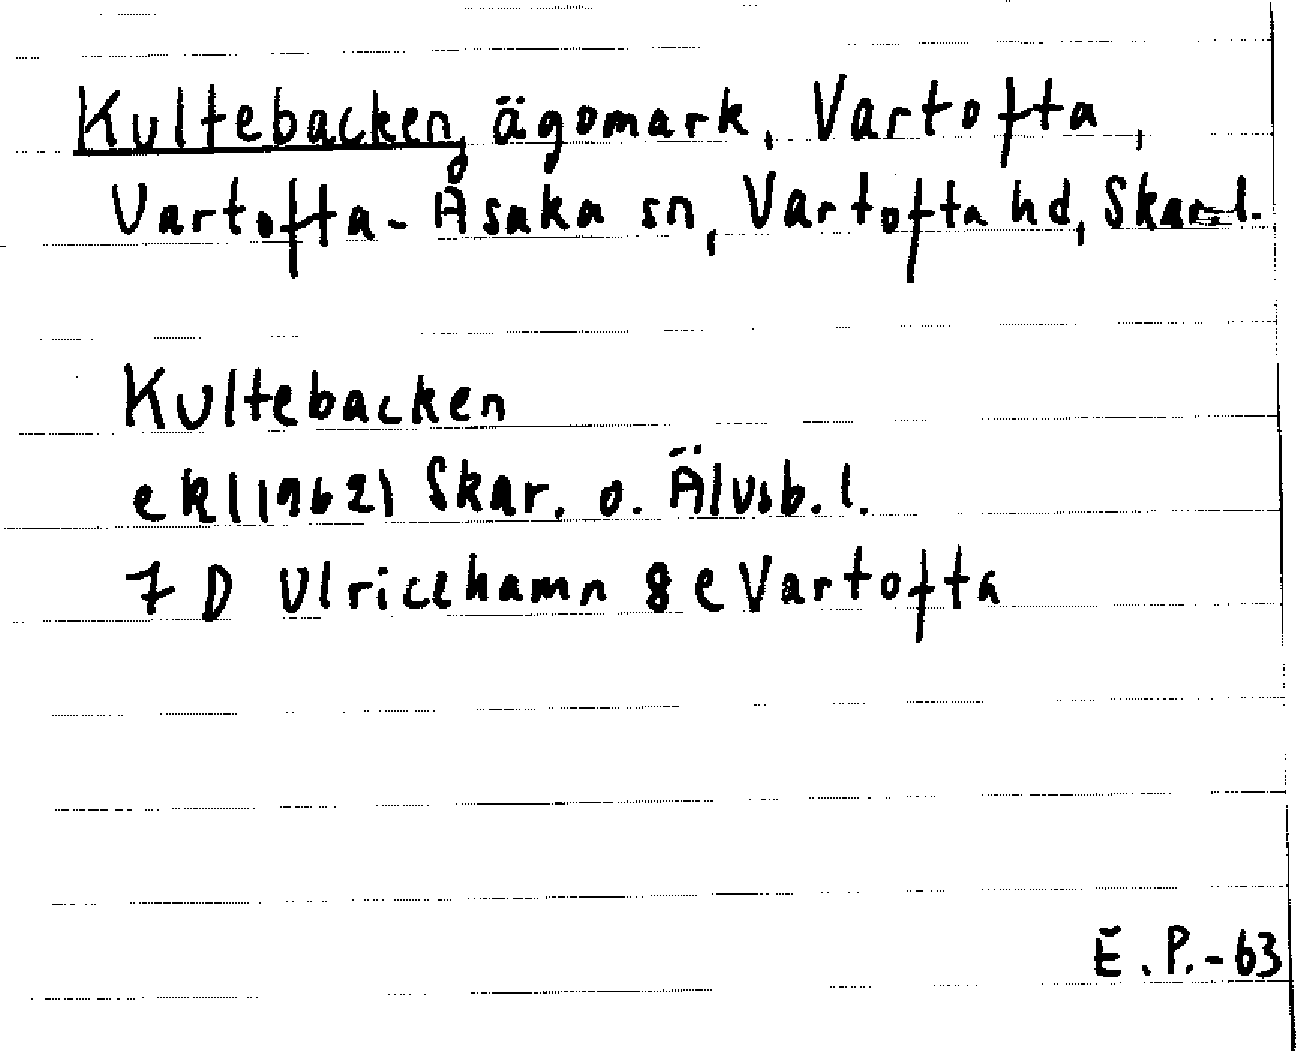 Kultebacken, ägomark, Vartofta,
Vartofta-Åsaka sn, Vartofta hd, Skar. l.
Kultebacken
ek (1962) Skar. o. Älvsb. l.
7 D Ulricehamn 8 e Vartofta
E. P. - 63